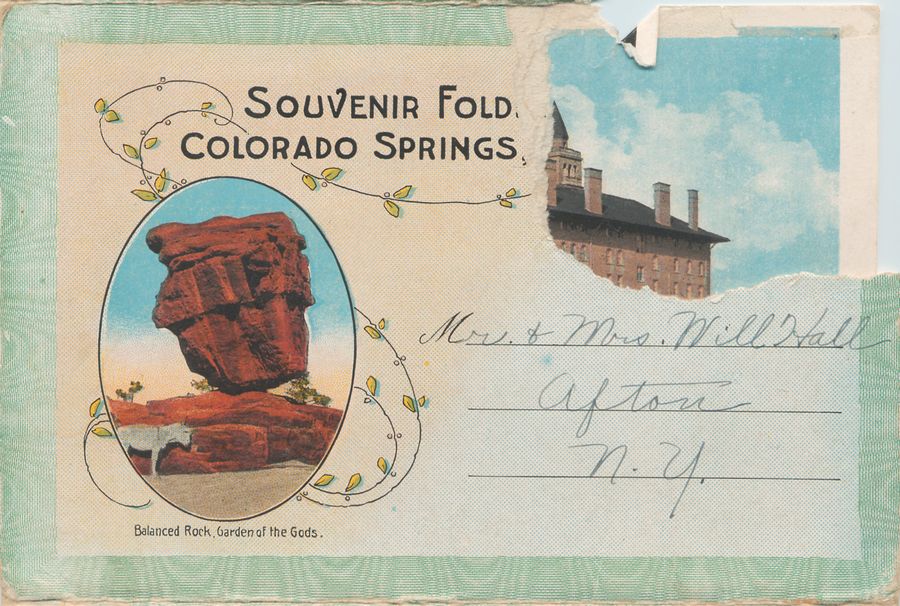 SOUVENIR FOLD.
COLORADO SPRINGS,
Mr. & Mrs. Will Hall
Afton
N.Y.
Balanced Rock, Garden of the Gods.